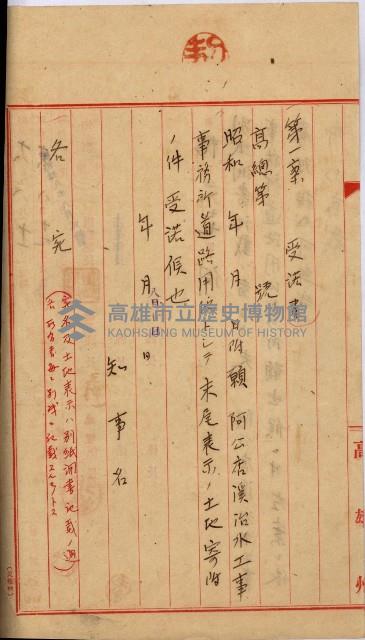 第一案 受諾書
高總第 號
昭和 年 月 日附願阿公店溪治水工事
事務所道路用地トシテ末尾表示ノ土地寄附
ノ件受諾候也
年 月 日
知事名
各宛
(宛名及土地表示ハ別紙調書記載ノ通
高雄州
高雄市立歷史博物館
KAOHSIUNG MUSEUM OF HISTORY